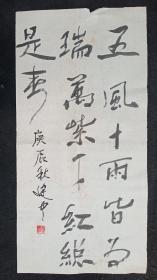 五風十雨皆為
瑞萬紫千紅總
是春
庚辰秋健中